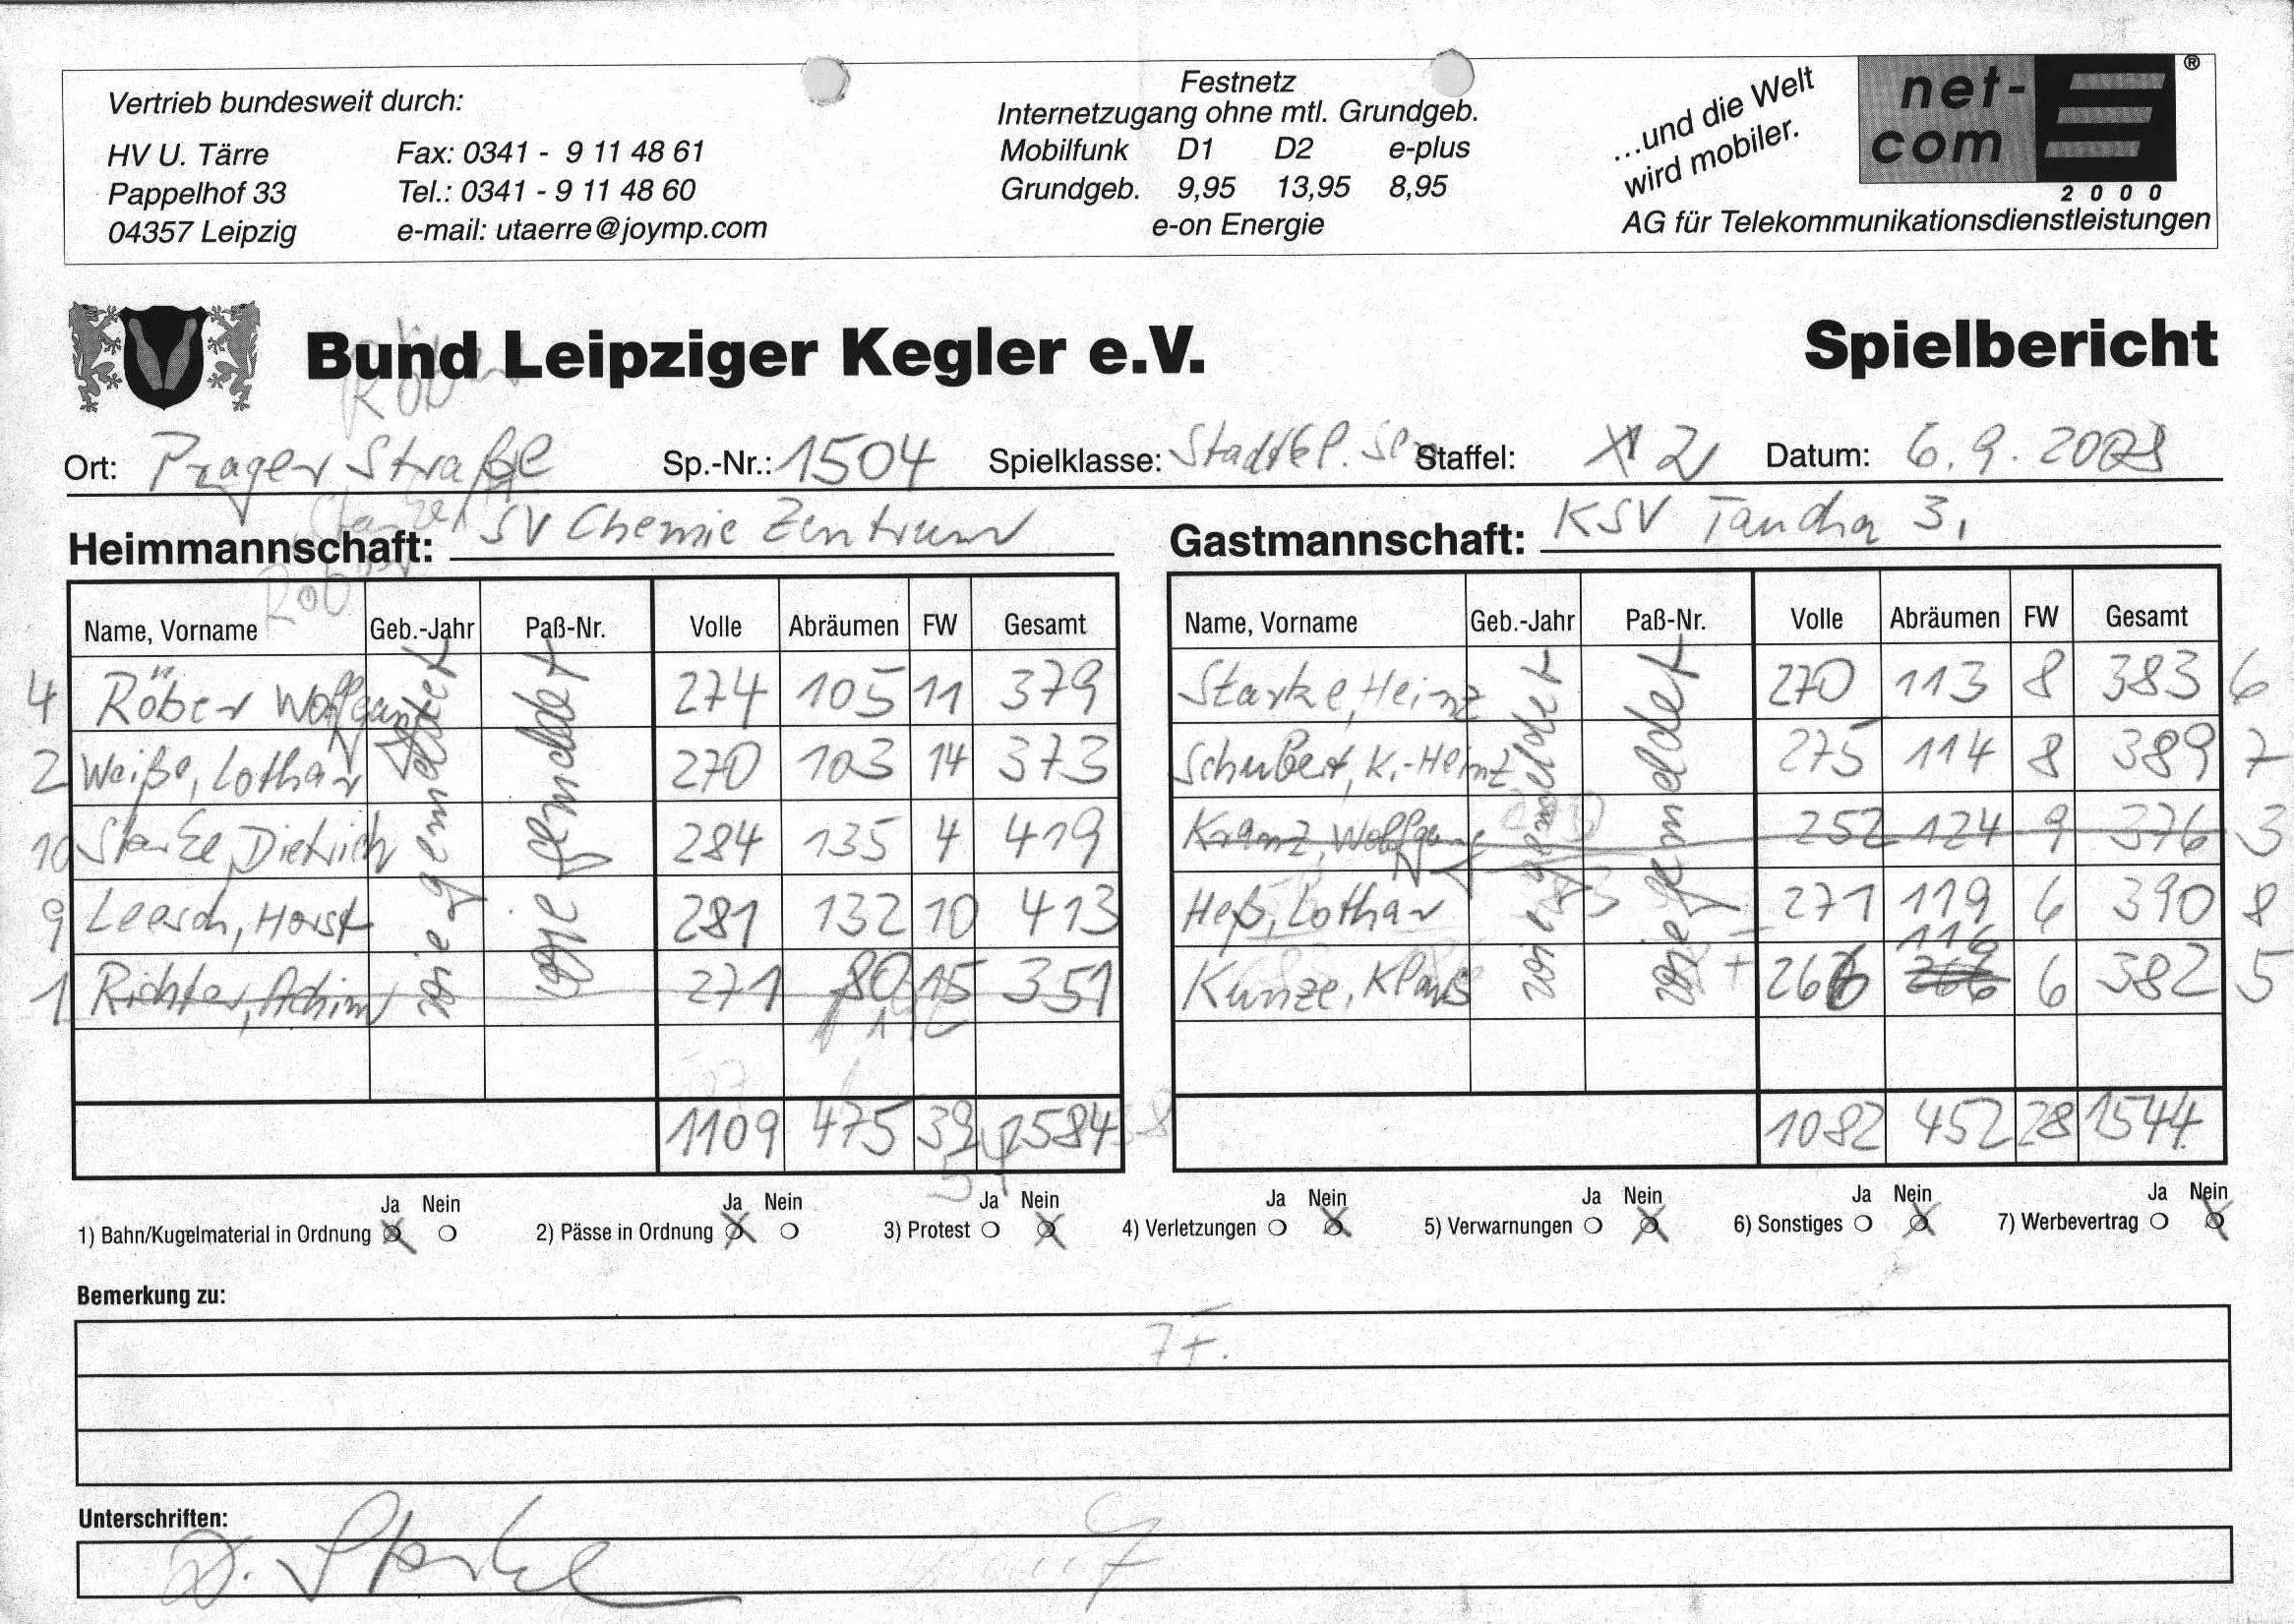 Vertrieb bundesweit durch:
HV U. Tärre Fax: 0341 - 9 11 48 61
Pappelhof 33 Tel.: 0341 - 9 11 48 60
04357 Leipzig e-mail: utaerre@joymp.com
Festnetz
Internetzugang ohne mtl. Grundgeb.
Mobilfunk D1 D2 e-plus
Grundgeb. 9,95 13,95 8,95
e-on Energie
...und die Welt
wird mobiler.
net-
com
®
2000
AG für Telekommunikationsdienstleistungen
Bund Leipziger Kegler e.V. Spielbericht
Ort: Prager Straße Sp.-Nr.: 1504 Spielklasse: Stadtkl. Sen Staffel: 2 Datum: 6.9.2008
Heimmannschaft: SV Chemie Zentrum
Name, Vorname Geb.-Jahr Paß-Nr. Volle Abräumen FW Gesamt
4 Röber Wolfgang 274 105 11 379
2 Weiße, Lothar 270 103 14 373
10 Starke, Dietrich 284 135 4 419
9 Leesch, Horst 281 132 10 413
1 Richter, Achim 271 80 15 351
wie gemeldet
wie gemeldet
1109 475 39 1584
Gastmannschaft: KSV Taucha 3.
Name, Vorname Geb.-Jahr Paß-Nr. Volle Abräumen FW Gesamt
Starke, Heinz 270 113 8 383 6
Schubert, K.-Heinz 275 114 8 389 7
Kranz, Wolfgang 252 124 9 376 3
Heß, Lothar 271 119 6 390 8
Kunze, Klaus 266 116 6 382 5
wie gemeldet
wie gemeldet
1082 452 28 1544
Ja Nein Ja Nein Ja Nein Ja Nein Ja Nein Ja Nein Ja Nein
1) Bahn/Kugelmaterial in Ordnung 2) Pässe in Ordnung 3) Protest 4) Verletzungen 5) Verwarnungen 6) Sonstiges 7) Werbevertrag
Bemerkung zu:
Unterschriften:
D. Starke